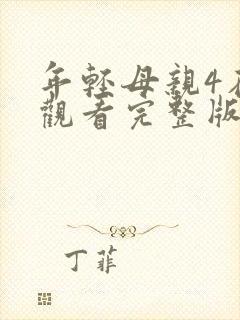 年輕母親4在
觀看完整版
丁菲